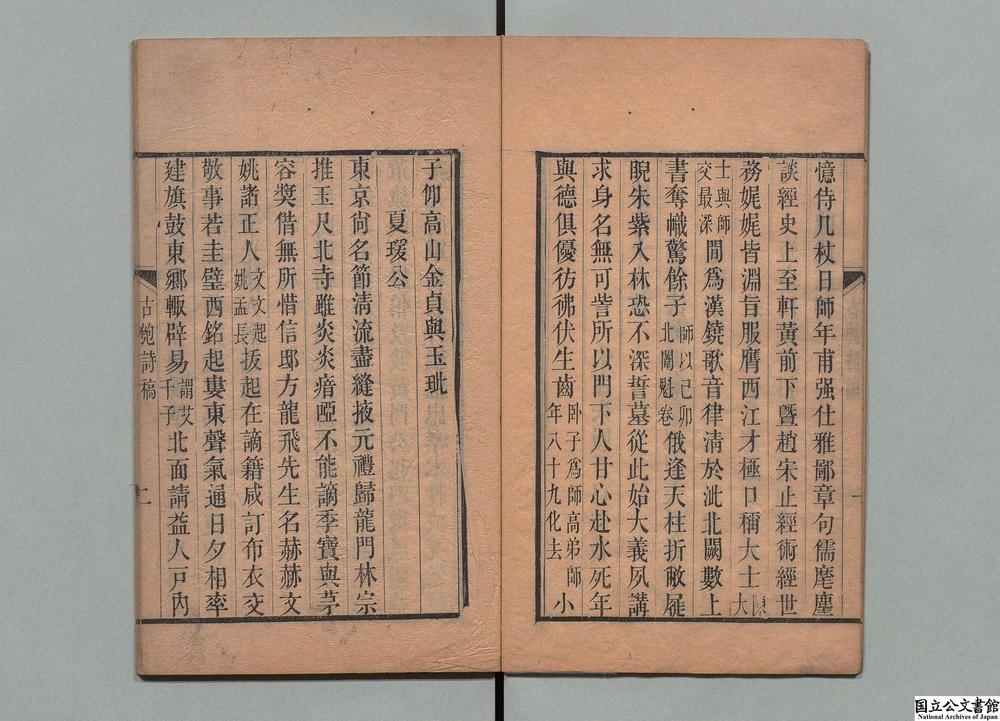 憶侍几杖日師年甫强仕雅鄙章句儒麾塵
談經史上至軒黃前下暨趙宋止經術經世
務娓娓皆淵旨服膺西江才極口稱大士陳大
士與師交最深間爲漢鐃歌音律清於沘北闕數上
書奪幟驚餘子師以己卯北闈魁卷俄逢天柱折敝屣
睨朱紫入林恐不深誓墓從此始大義夙講
求身名無可訾所以門下人甘心赴水死年
與德俱優彷彿伏生齒卧子爲師高弟師小年八十九化去
子仰高山金貞與玉玼
夏瑗公
東京尙名節清流盡縫掖元禮歸龍門林宗
推玉尺北寺雖炎炎瘖啞不能謫季寶與茅
容奬借無所惜信邸方龍飛先生名赫赫文
姚諸正人文文起姚孟長扳起在謫籍咸訂布衣交
敬事若圭璧西銘起婁東聲氣通日夕相率
建旗鼓東鄉輙辟易謂艾千子北面請益人戸內
古匏詩稿
二
国立公文書館
National Archives of Japan